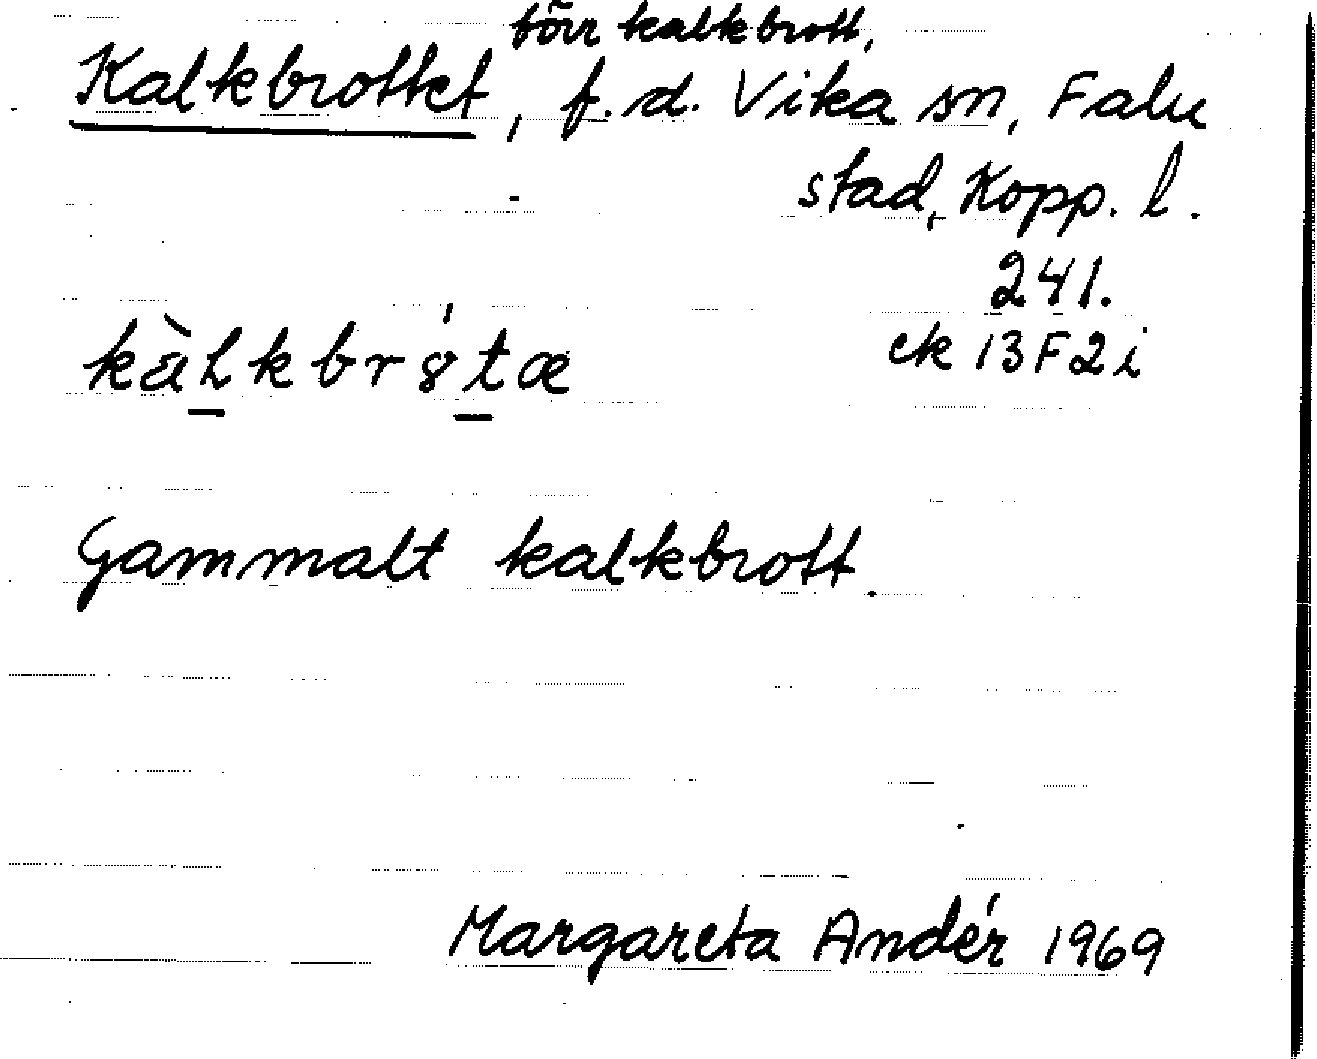 förr kalkbrott,
Kalkbrottet, f.d. Vika sn, Falu
stad, Kopp. l.
241.
ek 13F2i
Gammalt kalkbrott.
Margareta Andér 1969